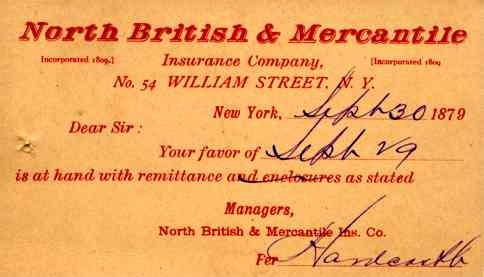 North British & Mercantile
[Incorporated 1809.] Insurance Company, [Incorporated 1809
No. 54 WILLIAM STREET, N. Y.
New York, Sept 30 1879
Dear Sir :
Your favor of Sept 29
is at hand with remittance and enclosures as stated
Managers,
North British & Mercantile Ins. Co.
Per Hardcastle